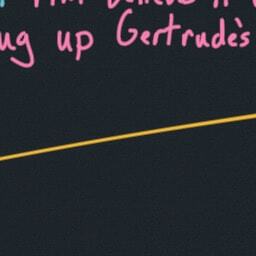 believe it
ug up Gertrude's